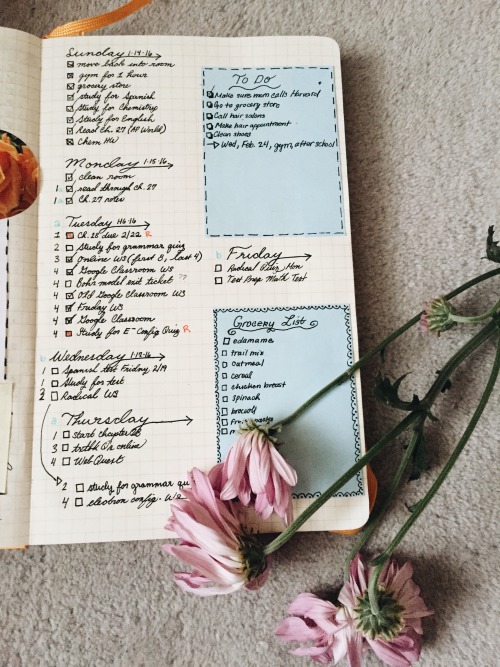 Sunday 1·14·16
move back into room
gym for 1 hour
grocery store
study for Spanish
Study for Chemistry
Study for English
Read Ch. 27 (AP World)
Chem HW
Monday 1·15·16
clean room
1 read through ch. 27
1 Ch. 27 notes
a Tuesday 1·16·16
1 Ch. 25 due 2/22 R
2 Study for grammar quiz
3 Online WS (first 8, last 4)
4 Google Classroom WS
4 Bohr model exit ticket ??
4 Old Google Classroom WS
4 Friday WS
4 Google Classroom
4 Study for E- Config Quiz R
b Wednesday
1 Spanish test Friday, 2/19
1 Study for test
2 Radical WS
a Thursday
1 Start chapter
3 online
4 WebQuest
2 study for grammar qu
4 electron config.
To Do
Make sure mom calls Harvard
Go to grocery store
Call hair salons
Make hair appointment
Clean shoes
Wed, Feb. 24, gym, after school
b Friday
Radical Quiz, Mon
Test Prep Math Test
Grocery List
edamame
trail mix
oatmeal
cereal
chicken breast
spinach
broccoli